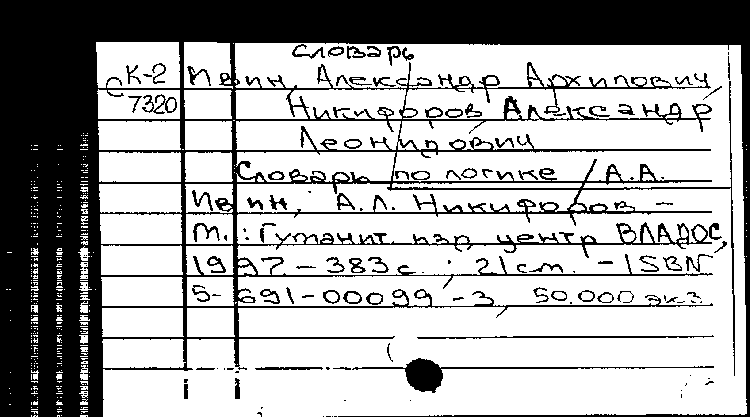 словарь
С К-2 Ивин, Александр Архипович
7320 Никифоров Александр
Леонидович
Словарь по логике / А.А.
Ивин, А.Л. Никифоров –
М.: Гуманит. изд. центр ВЛАДОС,
1997. – 383 с. ; 21 cm. – ISBN
5-691-00099-3, 50.000 экз.